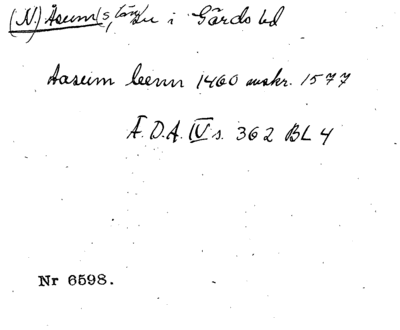 (N.) Åseum(s, län) su i Gärds hd
Aaseim leenn 1460 avskr. 1577
Ä. D. A. IV s. 362 BL 4
Nr 6598.